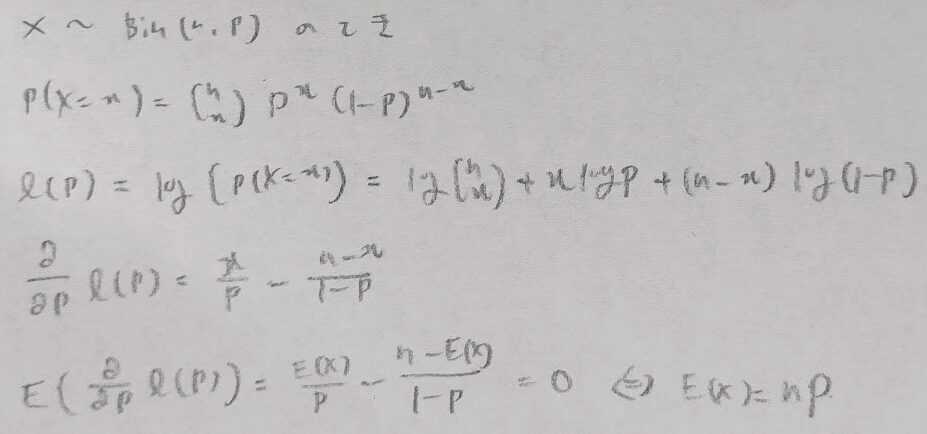 X ~ Bin(n, p) のとき
P(X=x) = (n x) p^x (1-p)^{n-x}
l(p) = log{P(X=x)} = log(n x) + x log p + (n-x) log(1-p)
∂/∂p l(p) = x/p - (n-x)/(1-p)
E(∂/∂p l(p)) = E(X)/p - (n-E(X))/(1-p) = 0 ⇔ E(X) = np